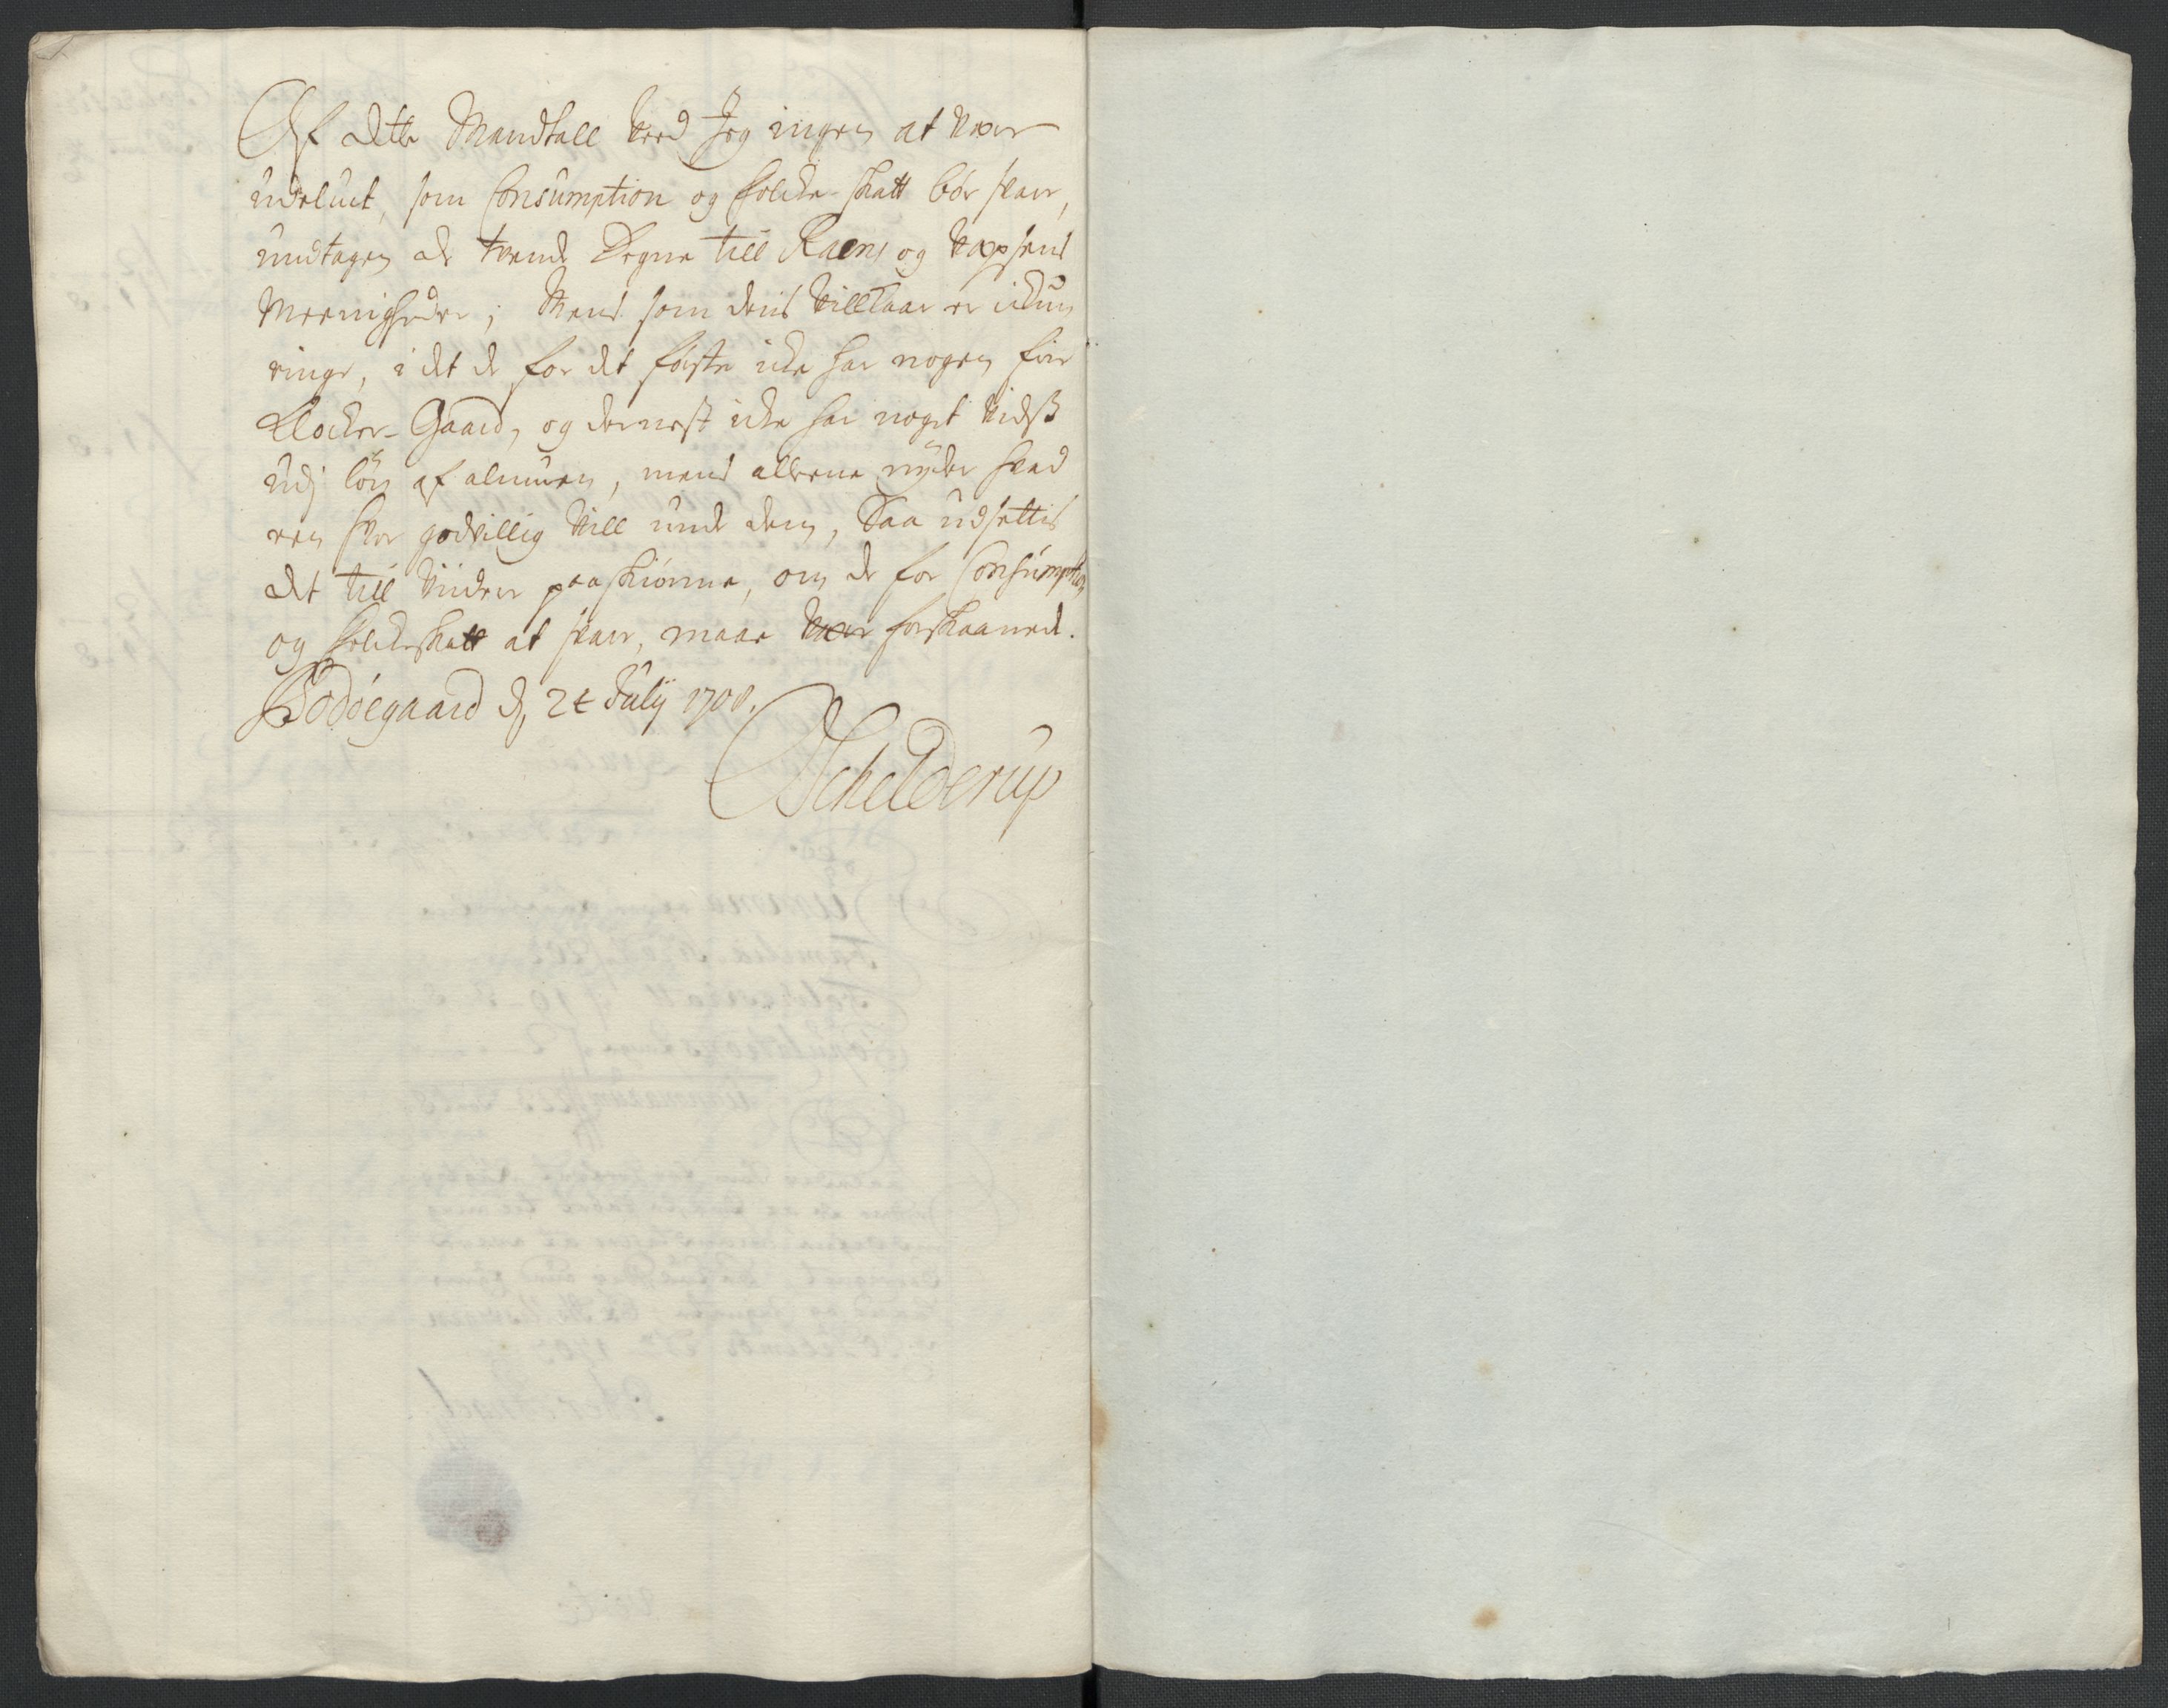 Af dette Mandtall veed Jeg ingen at være
udeluct, som Consumption og folcke-skatt bör svare,
undtagen de tvende Degne till Raens og
Meenigheder; Mens som deris villkaar er ickun
ringe, i det de for det förste icke har nogen frie
Klocker-Gaard, og dernest icke har noget vidst
udj lön af almuen, mens alleene nÿder hvad
een hver godvillig vill unde dem, Saa udsettis
det till viidere paaskiönne, om de for Consumption
og folckeskatt at svare, maae være forskaaned.
Bodöegaard d. 24 Julÿ 1708.
Schelderup